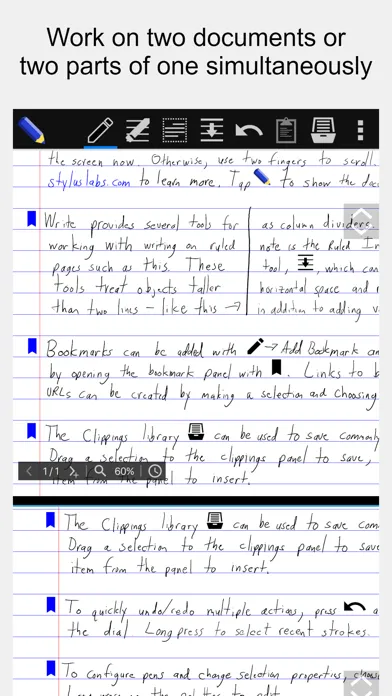 Work on two documents or
two parts of one simultaneously
the screen now. Otherwise, use two fingers to scroll.
styluslabs.com to learn more. Tap to show the doc
Write provides several tools for
working with writing on ruled
pages such as this. These
tools treat objects taller
than two lines – like this →
as column dividers.
note is the Ruled In
tool, , which can
horizontal space and
in addition to adding v
Bookmarks can be added with → Add Bookmark an
by opening the bookmark panel with . Links to b
URLs can be created by making a selection and choosing
The Clippings library can be used to save commonly
Drag a selection to the clippings panel to save,
item from the panel to insert.
1/1 60%
The Clippings library can be used to save com
Drag a selection to the clippings panel to save
item from the panel to insert.
To quickly undo/redo multiple actions, press a
the dial Long press to select recent strokes.
To configure pens and change selection properties, choos